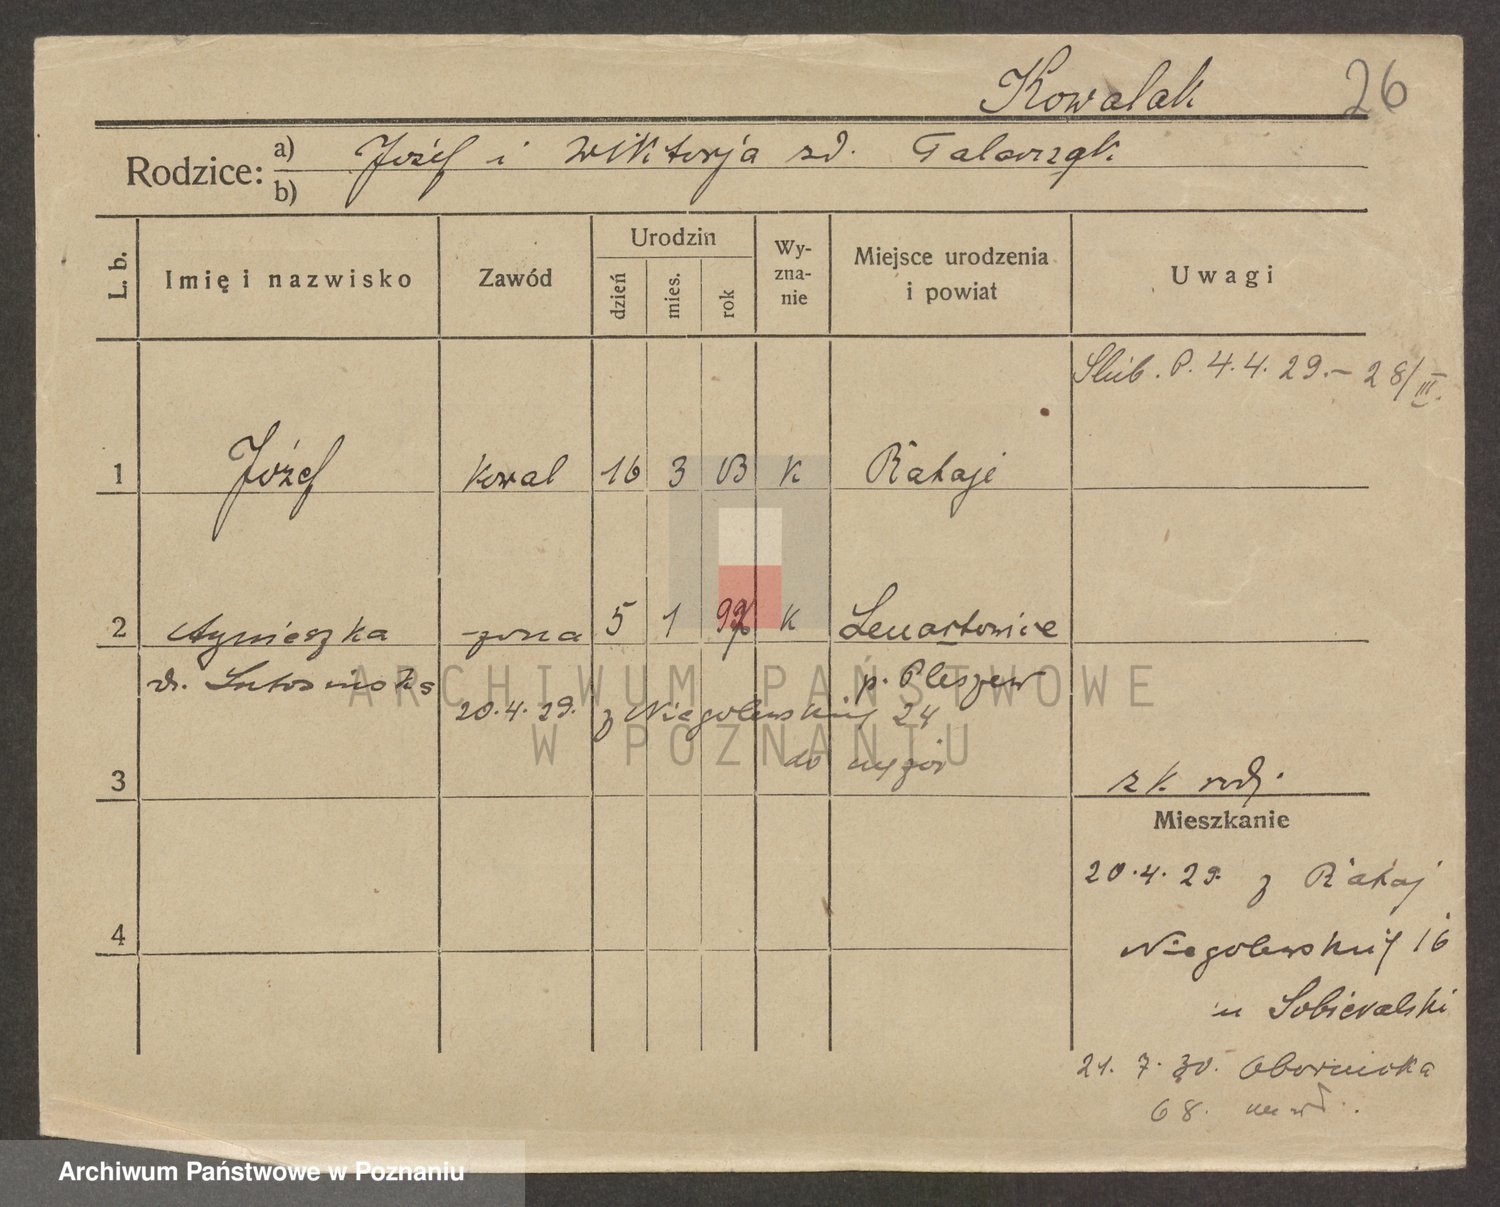 Kowalak 26
Rodzice: a) Józef i Wiktorja zd. Talarząk
b)
L. b. Imię i nazwisko Zawód Urodzin dzień mies. rok Wyznanie Miejsce urodzenia i powiat Uwagi
Ślub. P. 4.4.29.– 28/III.
1 Józef kowal 16 3 03 K Rataje
2 Agnieszka żona 5 1 99 K Lenartowice
p. Pleszew
20.4.29. z Niegolewskich 24
do
3 zk. rodz.
Mieszkanie
20.4.29. z Rataj
4
Niegolewskich 16
u Sobieralski
21.7.30. Obornicka
68.
ARCHIWUM PAŃSTWOWE
W POZNANIU
Archiwum Państwowe w Poznaniu